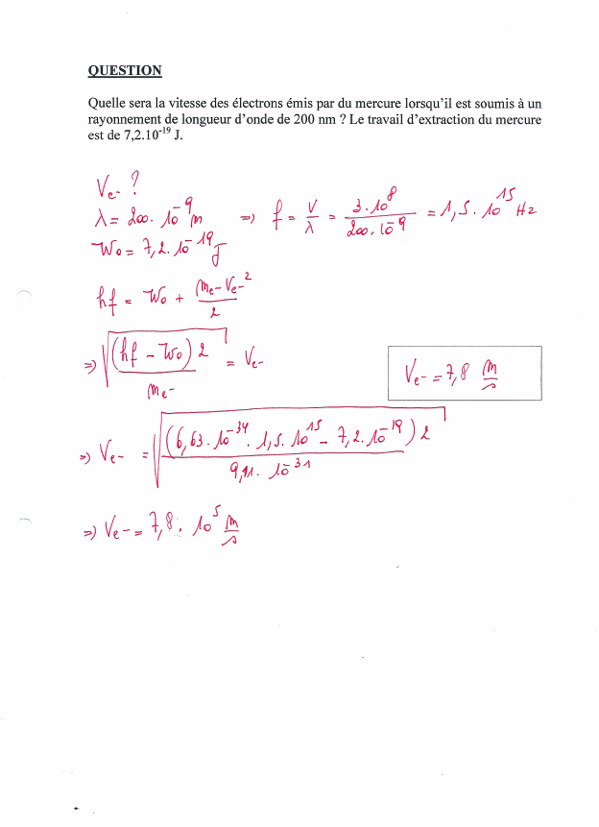 QUESTION
Quelle sera la vitesse des électrons émis par du mercure lorsqu'il est soumis à un
rayonnement de longueur d'onde de 200 nm ? Le travail d'extraction du mercure
est de 7,2.10⁻¹⁹ J.
Ve- ?
λ = 200. 10⁻⁹ m => f = V/λ = 3.10⁸/200.10⁻⁹ = 1,5.10¹⁵ Hz
W₀ = 7,2.10⁻¹⁹ J
hf = W₀ + me-Ve-²/2
=> √((hf - W₀) 2/me-) = Ve-
Ve- = 7,8 m/s
=> Ve- = √((6,63.10⁻³⁴. 1,5.10¹⁵ - 7,2.10⁻¹⁹) 2/9,11.10⁻³¹)
=> Ve- = 7,8. 10⁵ m/s